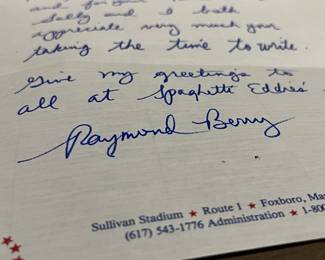 and for your
Sally and I both
appreciate very much your
taking the time to write.
Give my greetings to
all at Spaghetti Eddies.
Raymond Berry
Sullivan Stadium ★ Route 1 ★ Foxboro, Mas
(617) 543-1776 Administration ★ 1-800